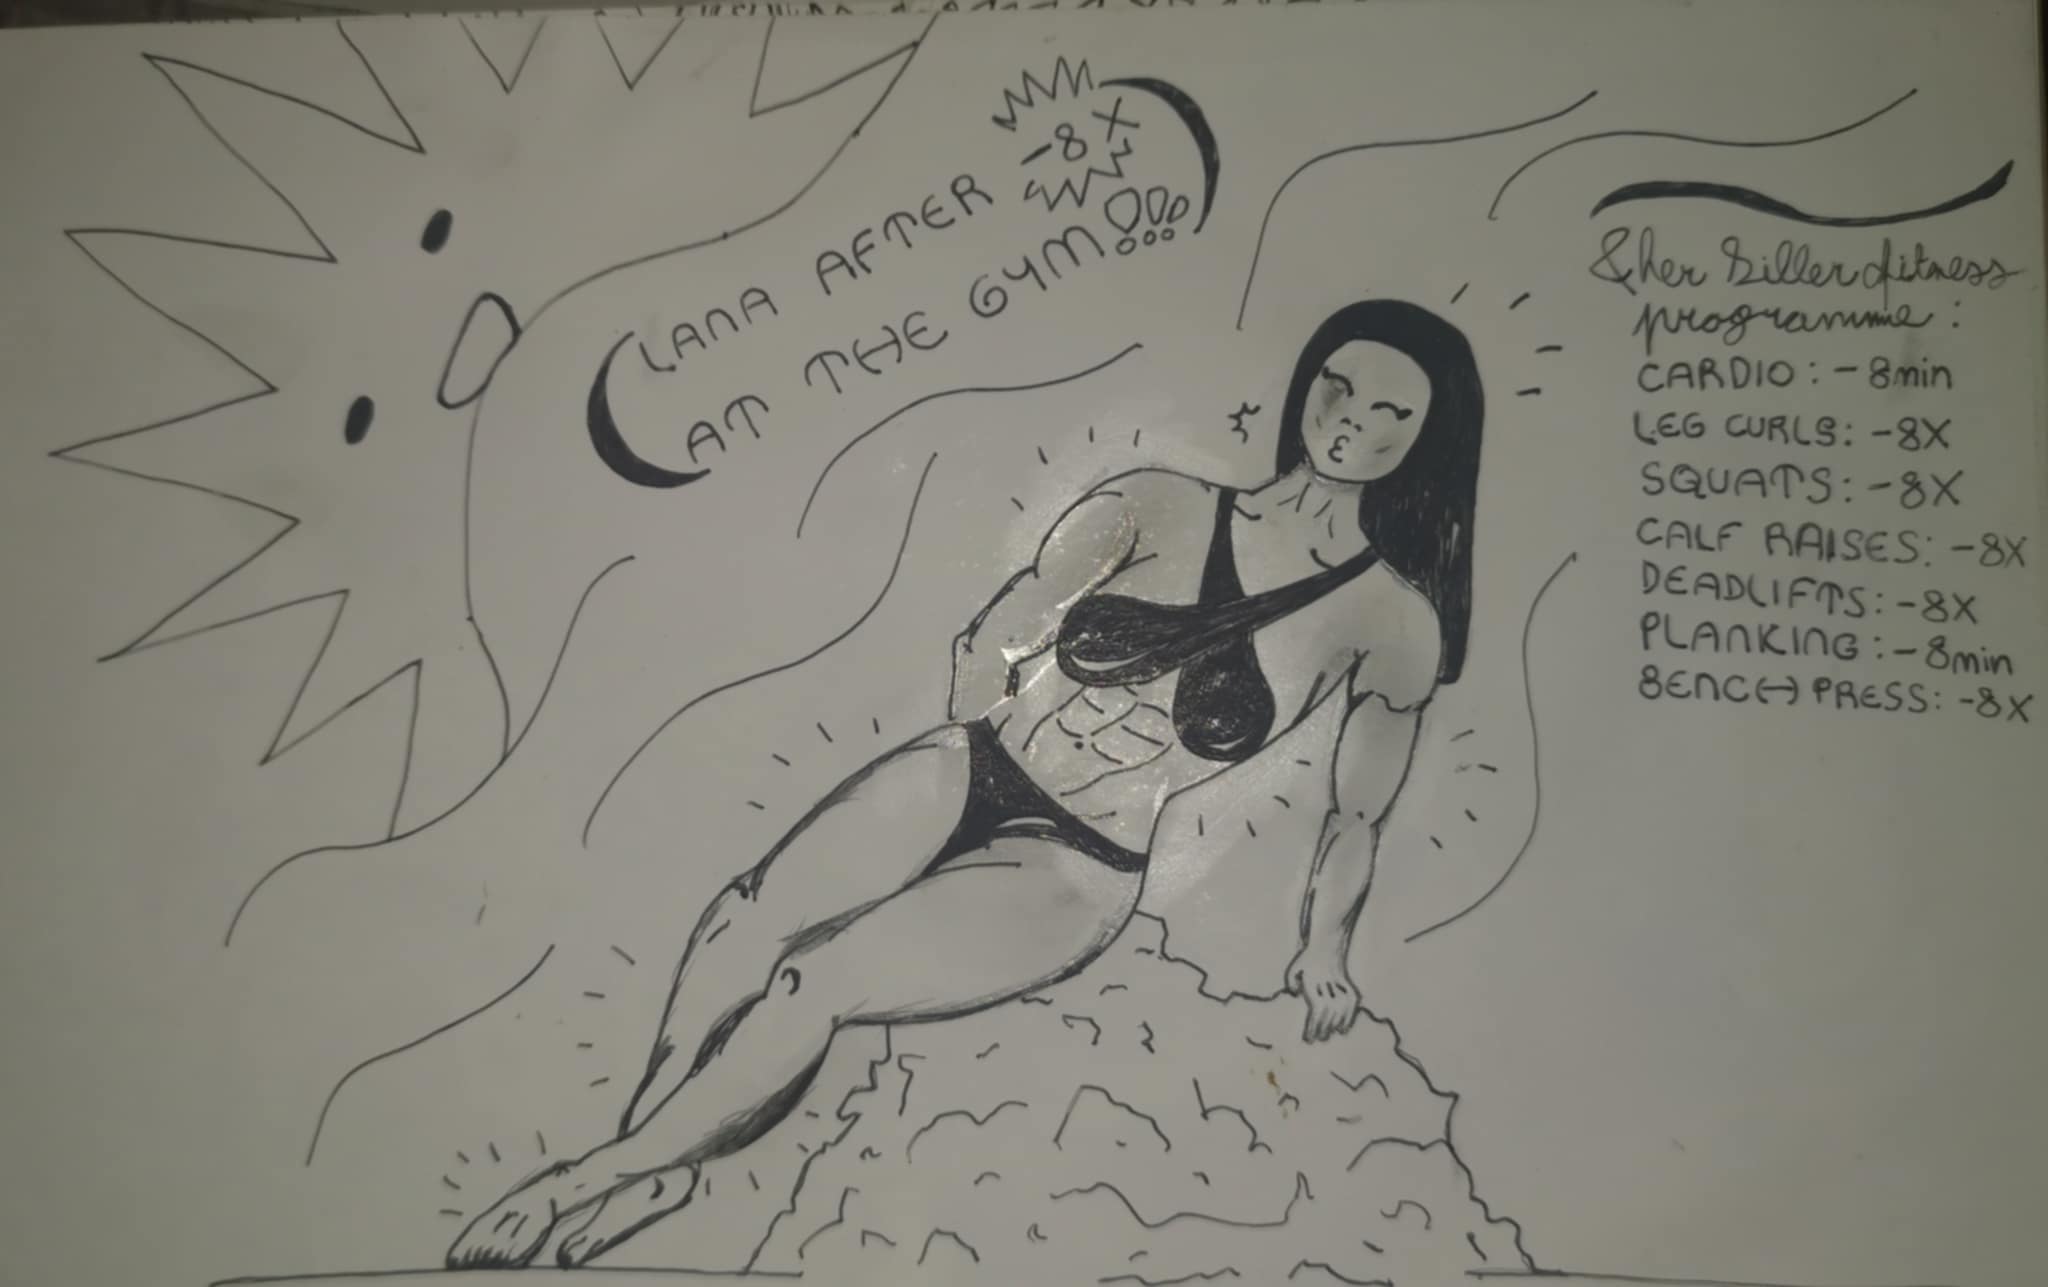 LANA AFTER -8X
AT THE GYM!!!
& her killer fitness
programme :
CARDIO : -8min
LEG CURLS: -8X
SQUATS: -8X
CALF RAISES: -8X
DEADLIFTS: -8X
PLANKING : -8min
BENCH PRESS: -8X